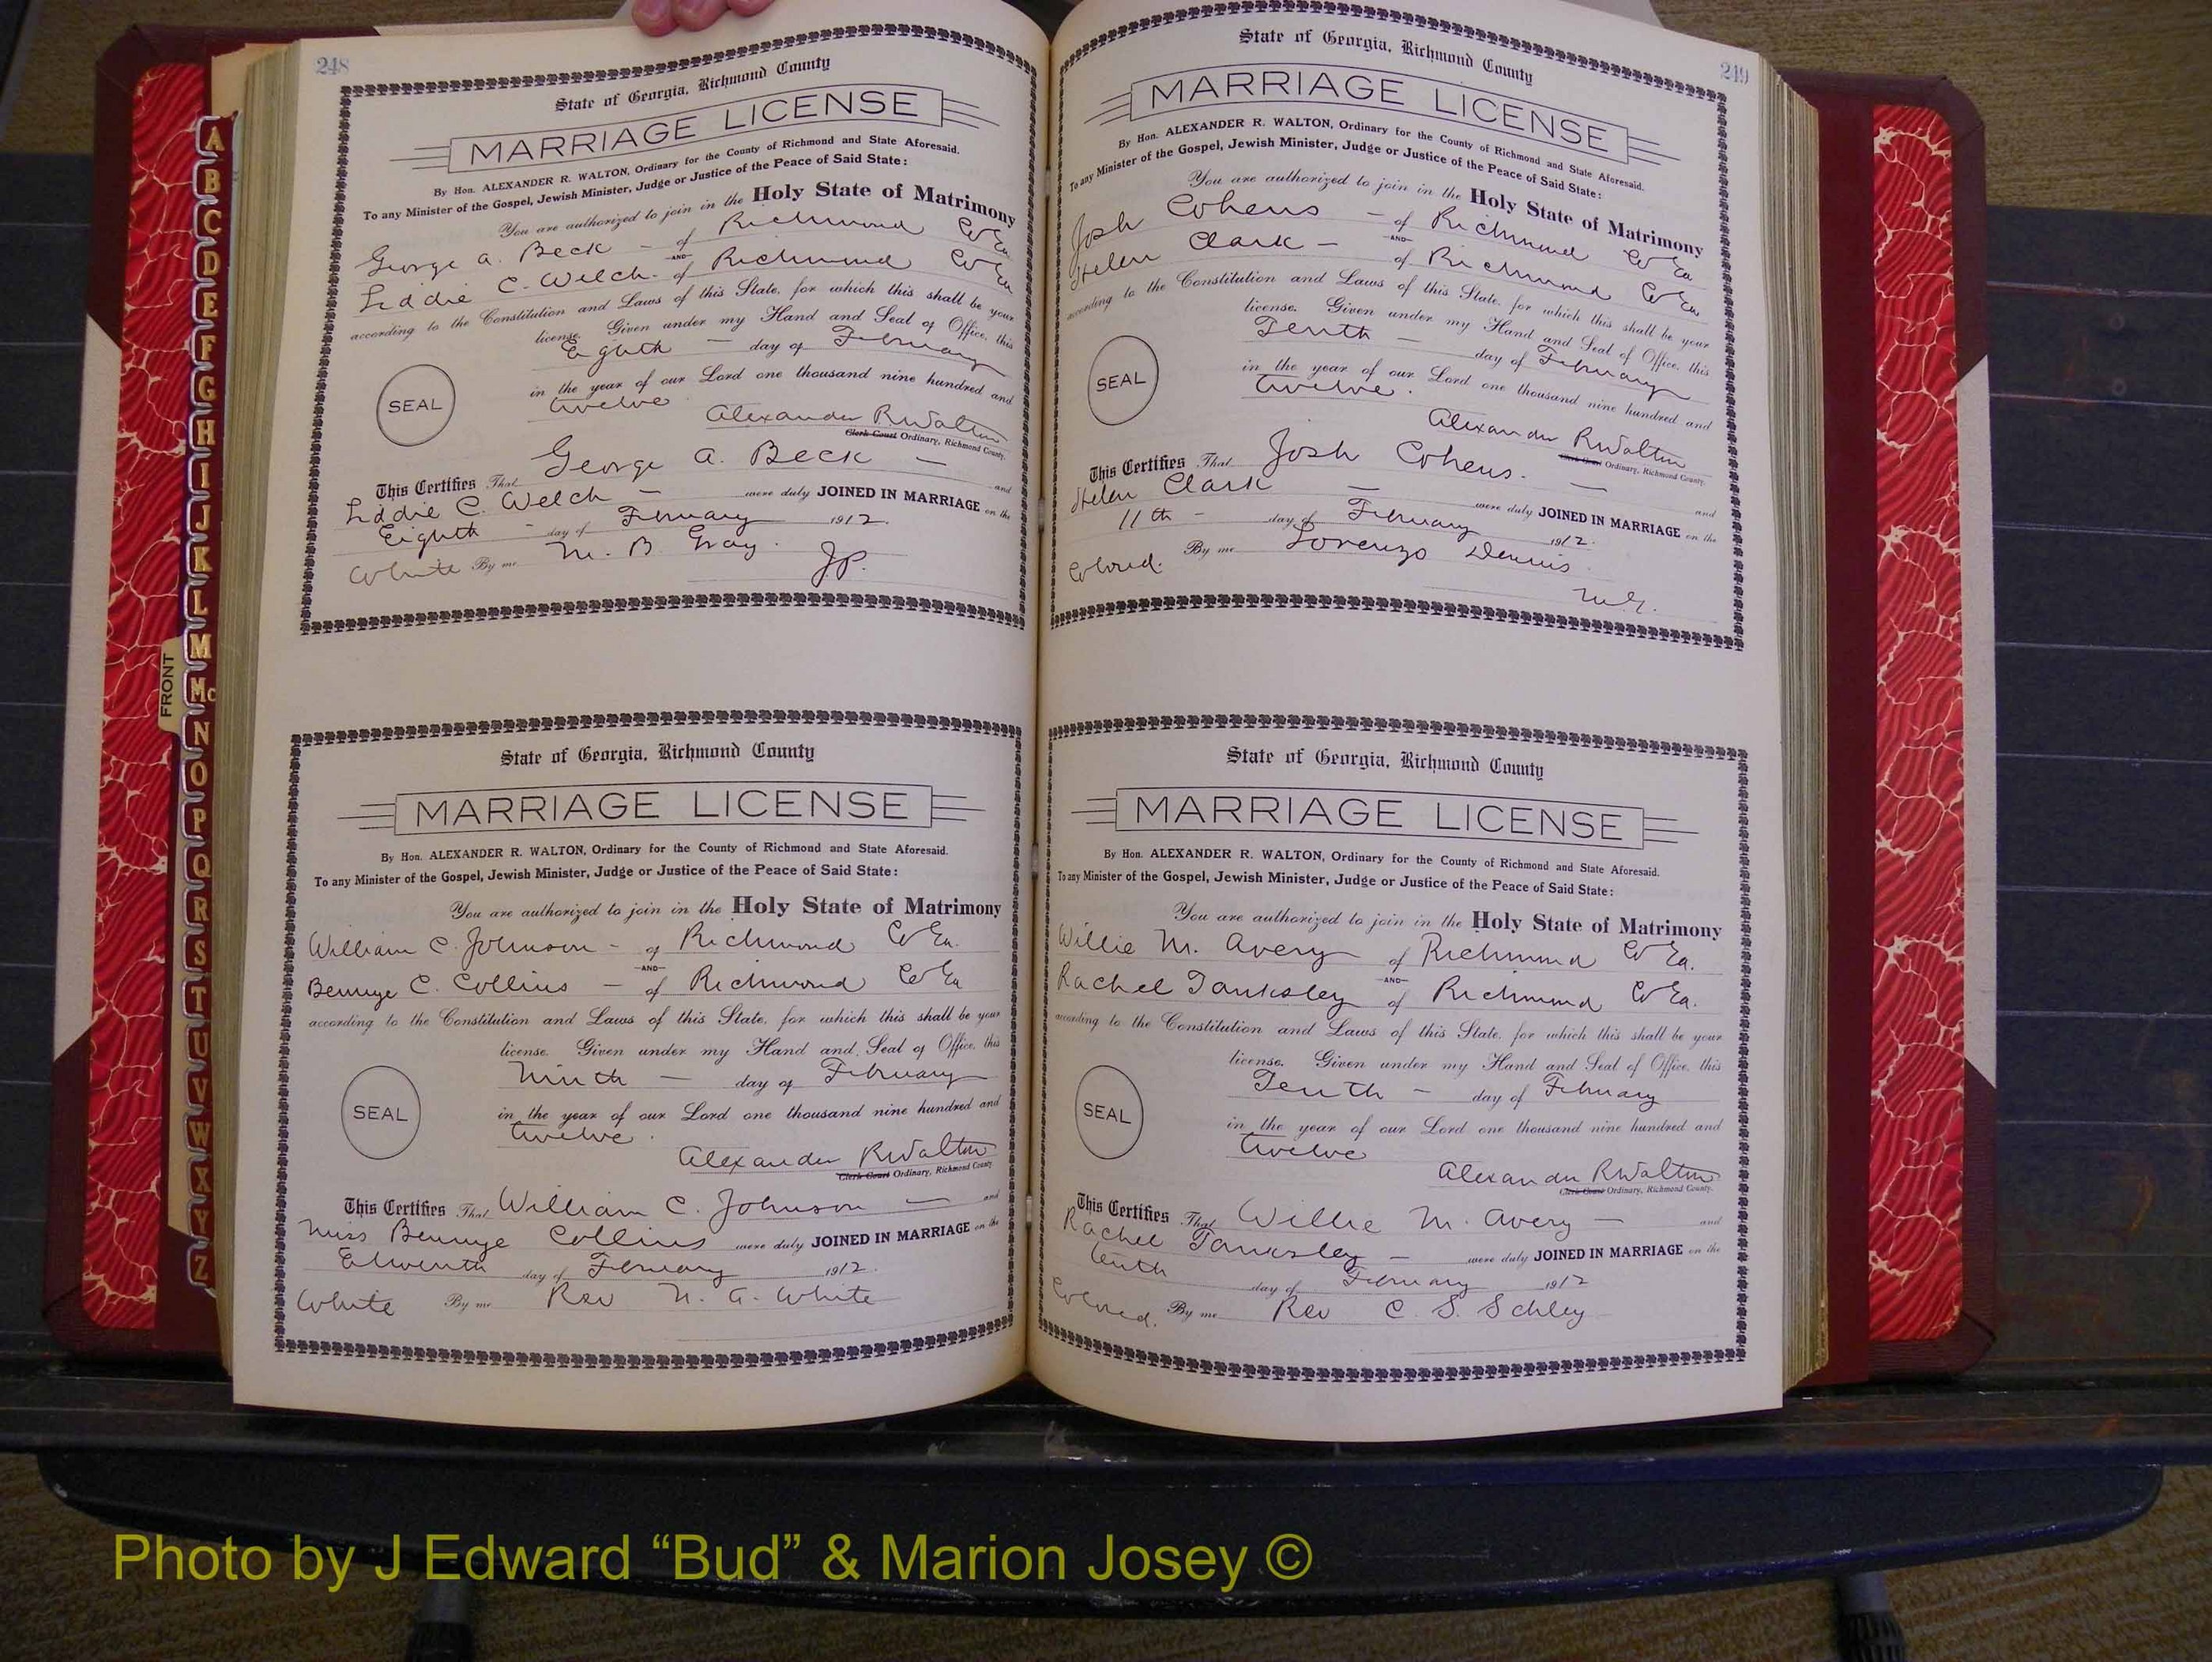 248
State of Georgia, Richmond County
MARRIAGE LICENSE
By Hon. ALEXANDER R. WALTON, Ordinary for the County of Richmond and State Aforesaid.
To any Minister of the Gospel, Jewish Minister, Judge or Justice of the Peace of Said State:
You are authorized to join in the Holy State of Matrimony
George A. Beck - of Richmond Co Ga
AND
Liddie C. Welch - of Richmond Co Ga
according to the Constitution and Laws of this State, for which this shall be your
license. Given under my Hand and Seal of Office, this
Eighth - day of February
in the year of our Lord one thousand nine hundred and
twelve
SEAL
Alexander R Walton
Clerk Court Ordinary, Richmond County.
This Certifies That George A. Beck - and
Liddie C. Welch - were duly JOINED IN MARRIAGE on the
Eighth - day of February 1912.
White By me M. B. Gray.
JP.
State of Georgia, Richmond County
MARRIAGE LICENSE
By Hon. ALEXANDER R. WALTON, Ordinary for the County of Richmond and State Aforesaid.
To any Minister of the Gospel, Jewish Minister, Judge or Justice of the Peace of Said State:
You are authorized to join in the Holy State of Matrimony
William C. Johnson - of Richmond Co Ga.
AND
Bennye C. Collins - of Richmond Co Ga
according to the Constitution and Laws of this State, for which this shall be your
license. Given under my Hand and Seal of Office, this
Ninth - day of February
in the year of our Lord one thousand nine hundred and
twelve.
SEAL
Alexander R Walton
Clerk Court Ordinary, Richmond County
This Certifies That William C. Johnson - and
Miss Bennye Collins were duly JOINED IN MARRIAGE on the
Elwenth day of February 1912.
White By me Rev N. A. White
249
State of Georgia, Richmond County
MARRIAGE LICENSE
By Hon. ALEXANDER R. WALTON, Ordinary for the County of Richmond and State Aforesaid.
To any Minister of the Gospel, Jewish Minister, Judge or Justice of the Peace of Said State:
You are authorized to join in the Holy State of Matrimony
Josh Cohens - of Richmond Co Ga
AND
Helen Clark - of Richmond Co Ga
according to the Constitution and Laws of this State, for which this shall be your
license. Given under my Hand and Seal of Office, this
Tenth - day of February
in the year of our Lord one thousand nine hundred and
twelve.
SEAL
Alexander R Walton
Clerk Court Ordinary, Richmond County.
This Certifies That Josh Cohens. - and
Helen Clark - were duly JOINED IN MARRIAGE on the
11th - day of February 1912.
Colored. By me Lorenzo Dennis.
M.G.
State of Georgia, Richmond County
MARRIAGE LICENSE
By Hon. ALEXANDER R. WALTON, Ordinary for the County of Richmond and State Aforesaid.
To any Minister of the Gospel, Jewish Minister, Judge or Justice of the Peace of Said State:
You are authorized to join in the Holy State of Matrimony
Willie M. Avery of Richmond Co Ga.
AND
Rachel Tanksley of Richmond Co Ga.
according to the Constitution and Laws of this State, for which this shall be your
license. Given under my Hand and Seal of Office, this
Tenth - day of February
in the year of our Lord one thousand nine hundred and
twelve
SEAL
Alexander R Walton
Clerk Court Ordinary, Richmond County.
This Certifies That Willie M. Avery - and
Rachel Tanksley - were duly JOINED IN MARRIAGE on the
tenth day of February 1912
Colored. By me Rev C. S. Schley
FRONT
A
B
C
D
E
F
G
H
I
J
K
L
M
Mc
N
O
P
Q
R
S
T
U
V
W
X
Y
Z
Photo by J Edward “Bud” & Marion Josey ©